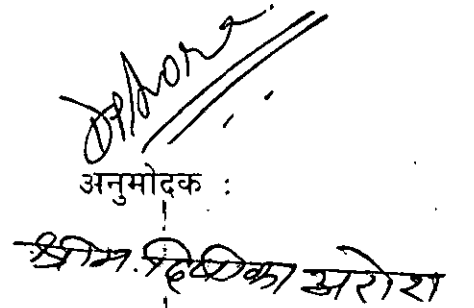 अनुमोदक :
श्रीम. दिपीका अरोरा